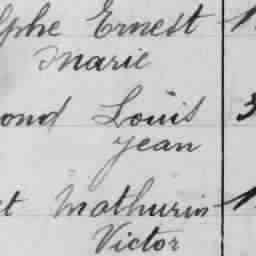 lphe Ernest 1
Marie
ond Louis 3
Jean
t Mathurin 1
Victor